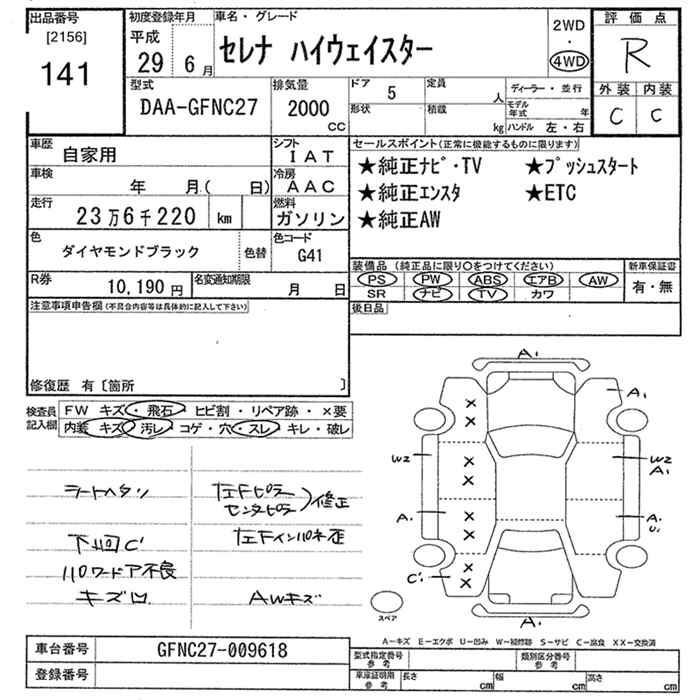 出品番号
[2156]
141
初度登録年月
平成
29 6月
車名・グレード
セレナ ハイウェイスター
2WD
・
4WD
評価点
R
外装 内装
C C
型式
DAA-GFNC27
排気量
2000
CC
ドア 5
定員 人
形状
積載 kg
ディーラー・並行
モデル年式 年
ハンドル 左・右
車歴
自家用
シフト
IAT
車検 年 月( 日)
冷房
AAC
走行
23万6千220 km
燃料
ガソリン
色
ダイヤモンドブラック
色替
色コード
G41
R券
10,190円
名変通知期限
月 日
セールスポイント(正常に機能するものに限ります)
★純正ナビ・TV ★プッシュスタート
★純正エンスタ ★ETC
★純正AW
装備品(純正品に限り〇をつけてください)
PS PW ABS エアB AW
SR ナビ TV カワ
新車保証書
有・無
後日品
注意事項申告欄(不具合内容等は具体的に記入して下さい)
修復歴 有〔箇所 〕
検査員記入欄
FW キズ・飛石・ヒビ割・リペア跡・×要
内装 キズ・汚レ・コゲ・穴・スレ・キレ・破レ
シートヘタリ
下回C'
パワードア不良
キズ凹
左Fピラー
センタピラー)修正
左Fインパネ歪
AWキズ
A1
A1
W2
W2
A1
A1
A1
U1
C'
A1
× × × × × × × ×
スペア
A-キズ E-エクボ U-凹み W-補修跡 S-サビ C-腐食 XX-交換済
車台番号
GFNC27-009618
登録番号
型式指定番号
参考
類別区分番号
参考
車庫証明用
参考
長さ cm
幅 cm
高さ cm